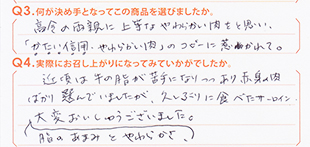 Q3.何が決め手となってこの商品を選びましたか。
高令の両親に上等なやわらかい肉をと思い、
「かたい信用・やらかい肉」のコピーに惹かれて。
Q4.実際にお召し上がりになってみていかがでしたか。
近頃は牛の脂が苦手になりつつあり赤身の肉
ばかり選んでいましたが、久しぶりに食べたサーロイン、
大変おいしゅうございました。
脂のあまみとやわらかさ、